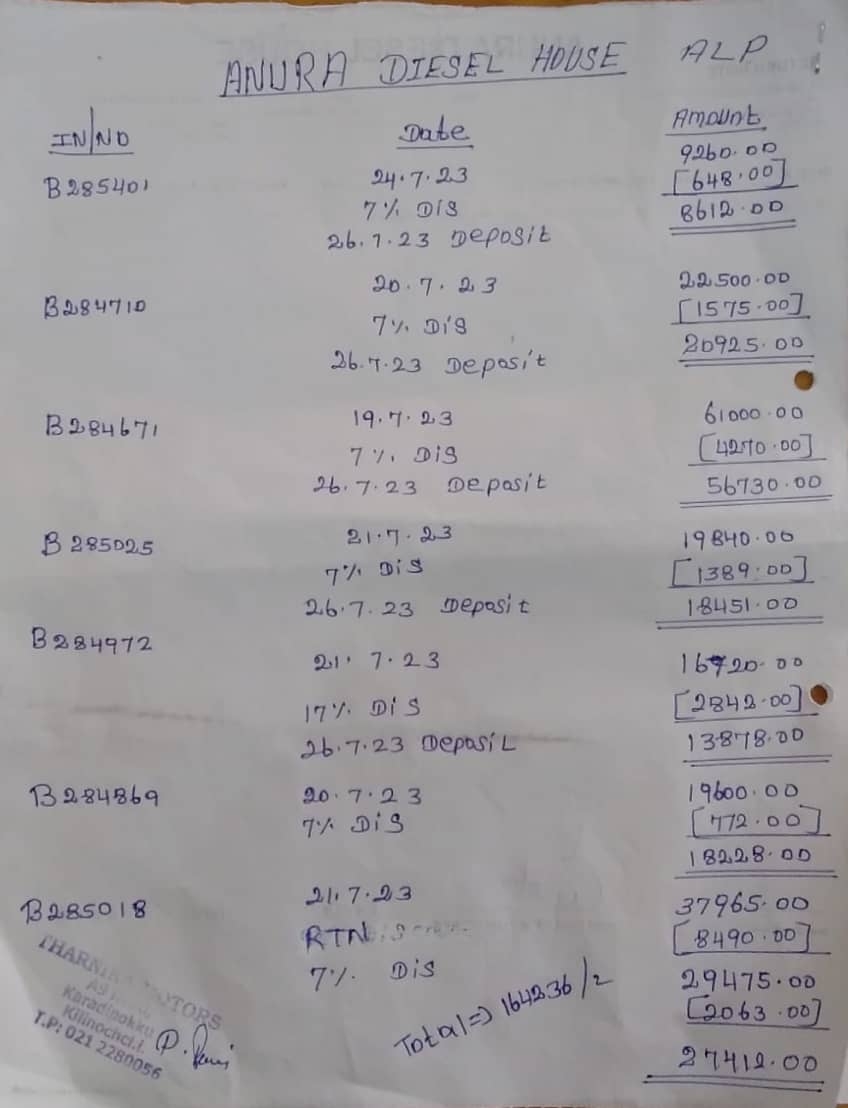 ANURA DIESEL HOUSE ALP
IN/NO Date Amount
B285401 24.7.23 9260.00
7% DIS [648.00]
26.7.23 Deposit 8612.00
B284710 20.7.23 22500.00
7% DIS [1575.00]
26.7.23 Deposit 20925.00
B284671 19.7.23 61000.00
7% DIS [4270.00]
26.7.23 Deposit 56730.00
B285025 21.7.23 19840.00
7% DIS [1389.00]
26.7.23 Deposit 18451.00
B284972 21.7.23 16720.00
17% DIS [2842.00]
26.7.23 Deposit 13878.00
B284869 20.7.23 19600.00
7% DIS [772.00]
18228.00
B285018 21.7.23 37965.00
RTN [8490.00]
7% DIS 29475.00
[2063.00]
27412.00
Total=> 164236/2
MOTORS
Karadipokku
Kilinochchi.
T.P: 021 2280056